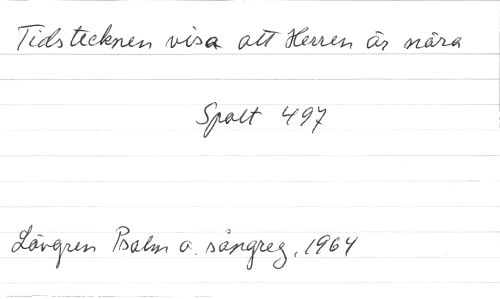 Tidstecknen visa att Herren är nära
Spalt 497
Lövgren Psalm o. sångreg, 1964